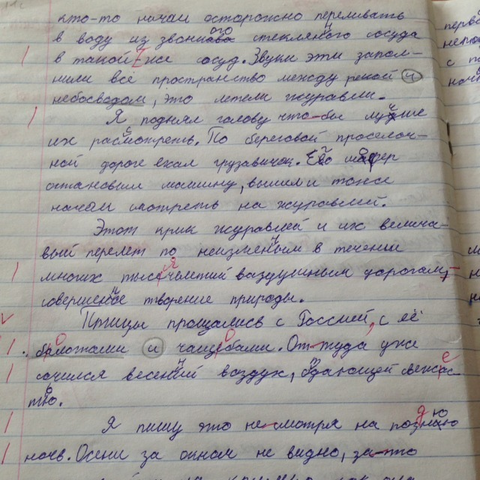 кто-то начал осторожно переливать
в воду из звонкого стеклевого сосуда
в такой же сосуд. Звуки эти запол-
нили всё пространство между рекой и
небосводом, это летели журавли.
Я поднял голову что-бы лучше
их рассмотреть. По береговой проселоч-
ной дороге ехал грузавичок. Его шофёр
остановил машину, вышел и тоже
начал смотреть на журавлей.
Этот крик журавлей и их велича-
вый перелет по неизменным в течении
многих тысячилетий воздушным дорогам,
совершеное творение природы.
Птицы прощались с Россией, с её
болотами и чащебами. От-туда уже
сочился весений воздух,
тво.
Я пишу это не смотря на позднюю
ночь. Осени за окном не видно, за-то
перв
непо
с по
ноч